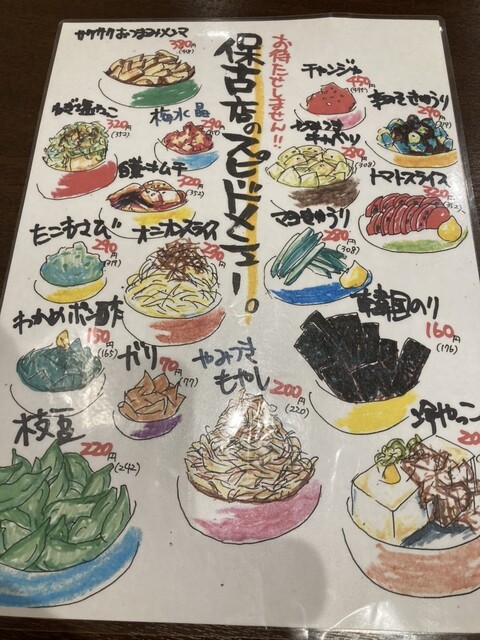 サクサクおつまみメンマ
380円
(418)
お待たせしません!!
保古店のスピードメニュー。
チャンジャ
450円
(495)
320円
(352)
梅水晶
290円
キャベツ
280円
(308)
きゅうり
290円
(319)
白菜キムチ
320円
(352)
トマトスライス
320円
(352)
たこわさび
290円
(319)
オニオンスライス
230円
マヨきゅうり
280円
(308)
わかめポン酢
150円
(165)
ガリ
70円
(77)
やみつき
もやし
200円
(220)
韓国のり
160円
(176)
枝豆
220円
(242)
冷やっこ